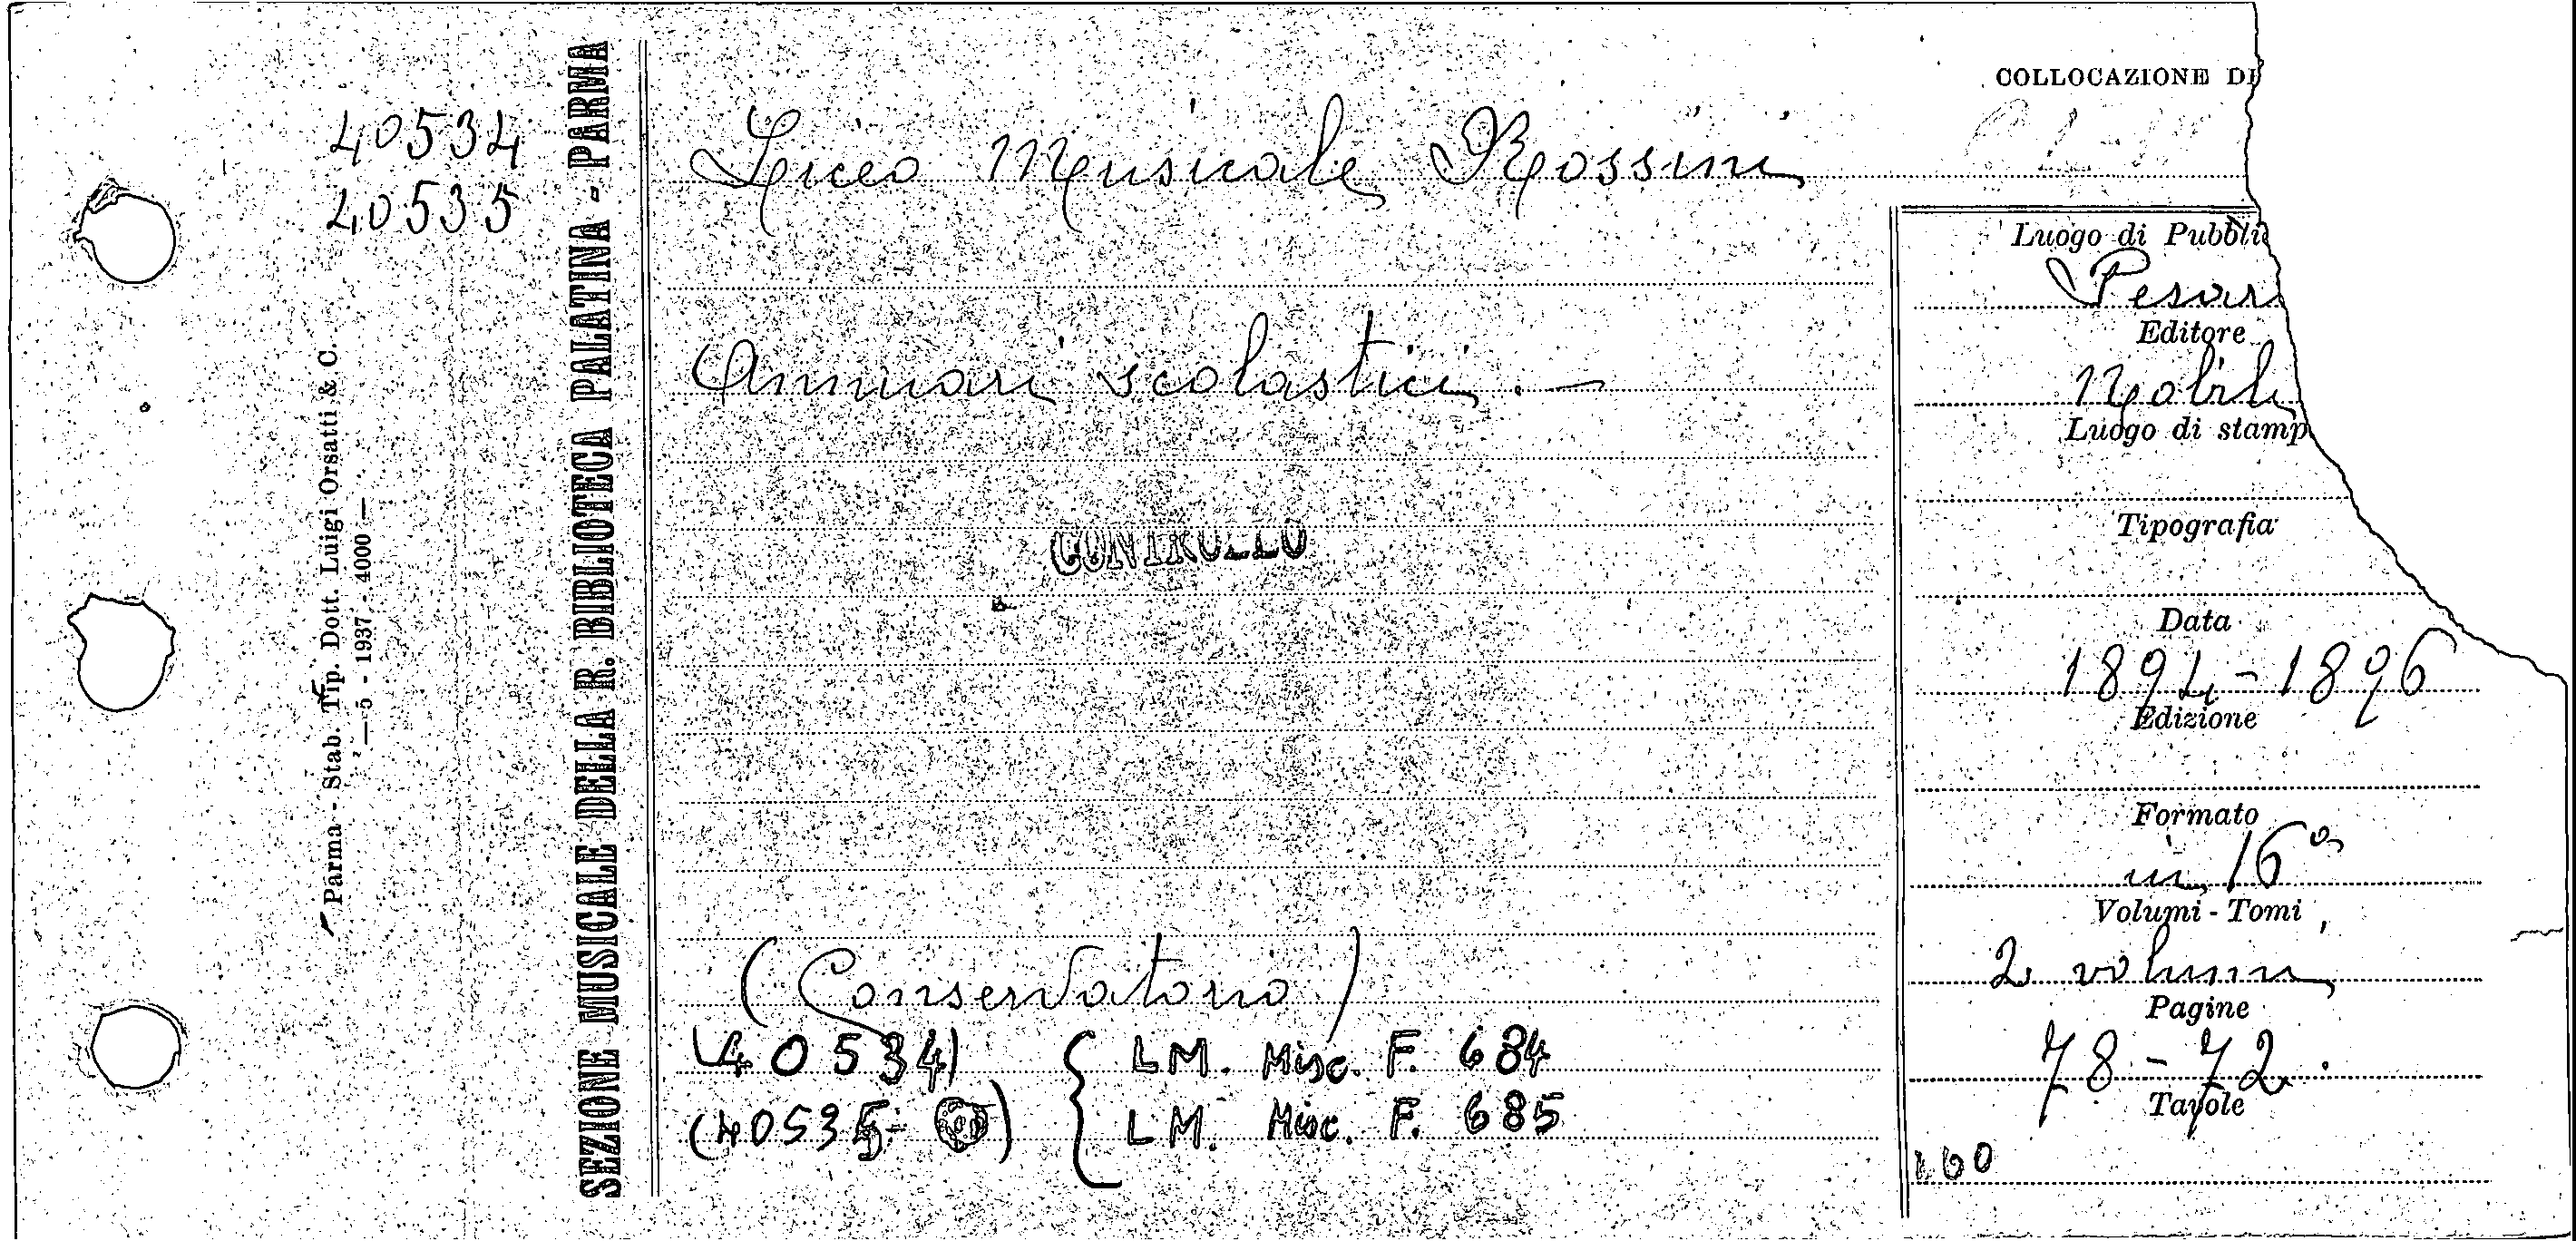 40534
40535
Parma - Stab. Tip. Dott. Luigi Orsatti & C.
— 5 - 1937 - 4000 —
SEZIONE MUSICALE DELLA R. BIBLIOTECA PALATINA - PARMA
COLLOCAZIONE DI
Liceo Musicale Rossini
Annuari scolastici. —
CONTROLLO
(Conservatorio)
(40534) { LM. Misc. F. 684
(40535 ) LM. Misc. F. 685
Luogo di Pubbli
Pesar
Editore
Nobili
Luogo di stamp
Tipografia
Data
1894-1896
Edizione
Formato
in 16°
Volumi - Tomi
2 volumi
Pagine
78-72.
Tavole
160